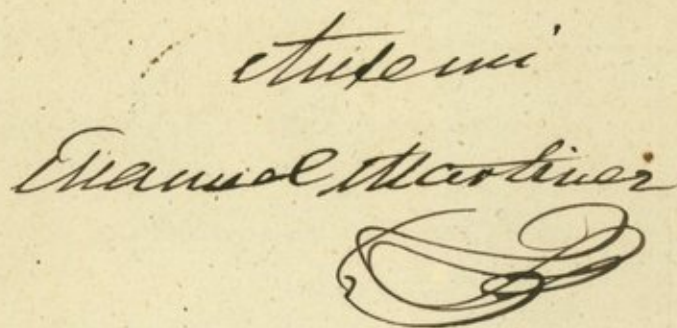 Ante mi
Manuel Martinez